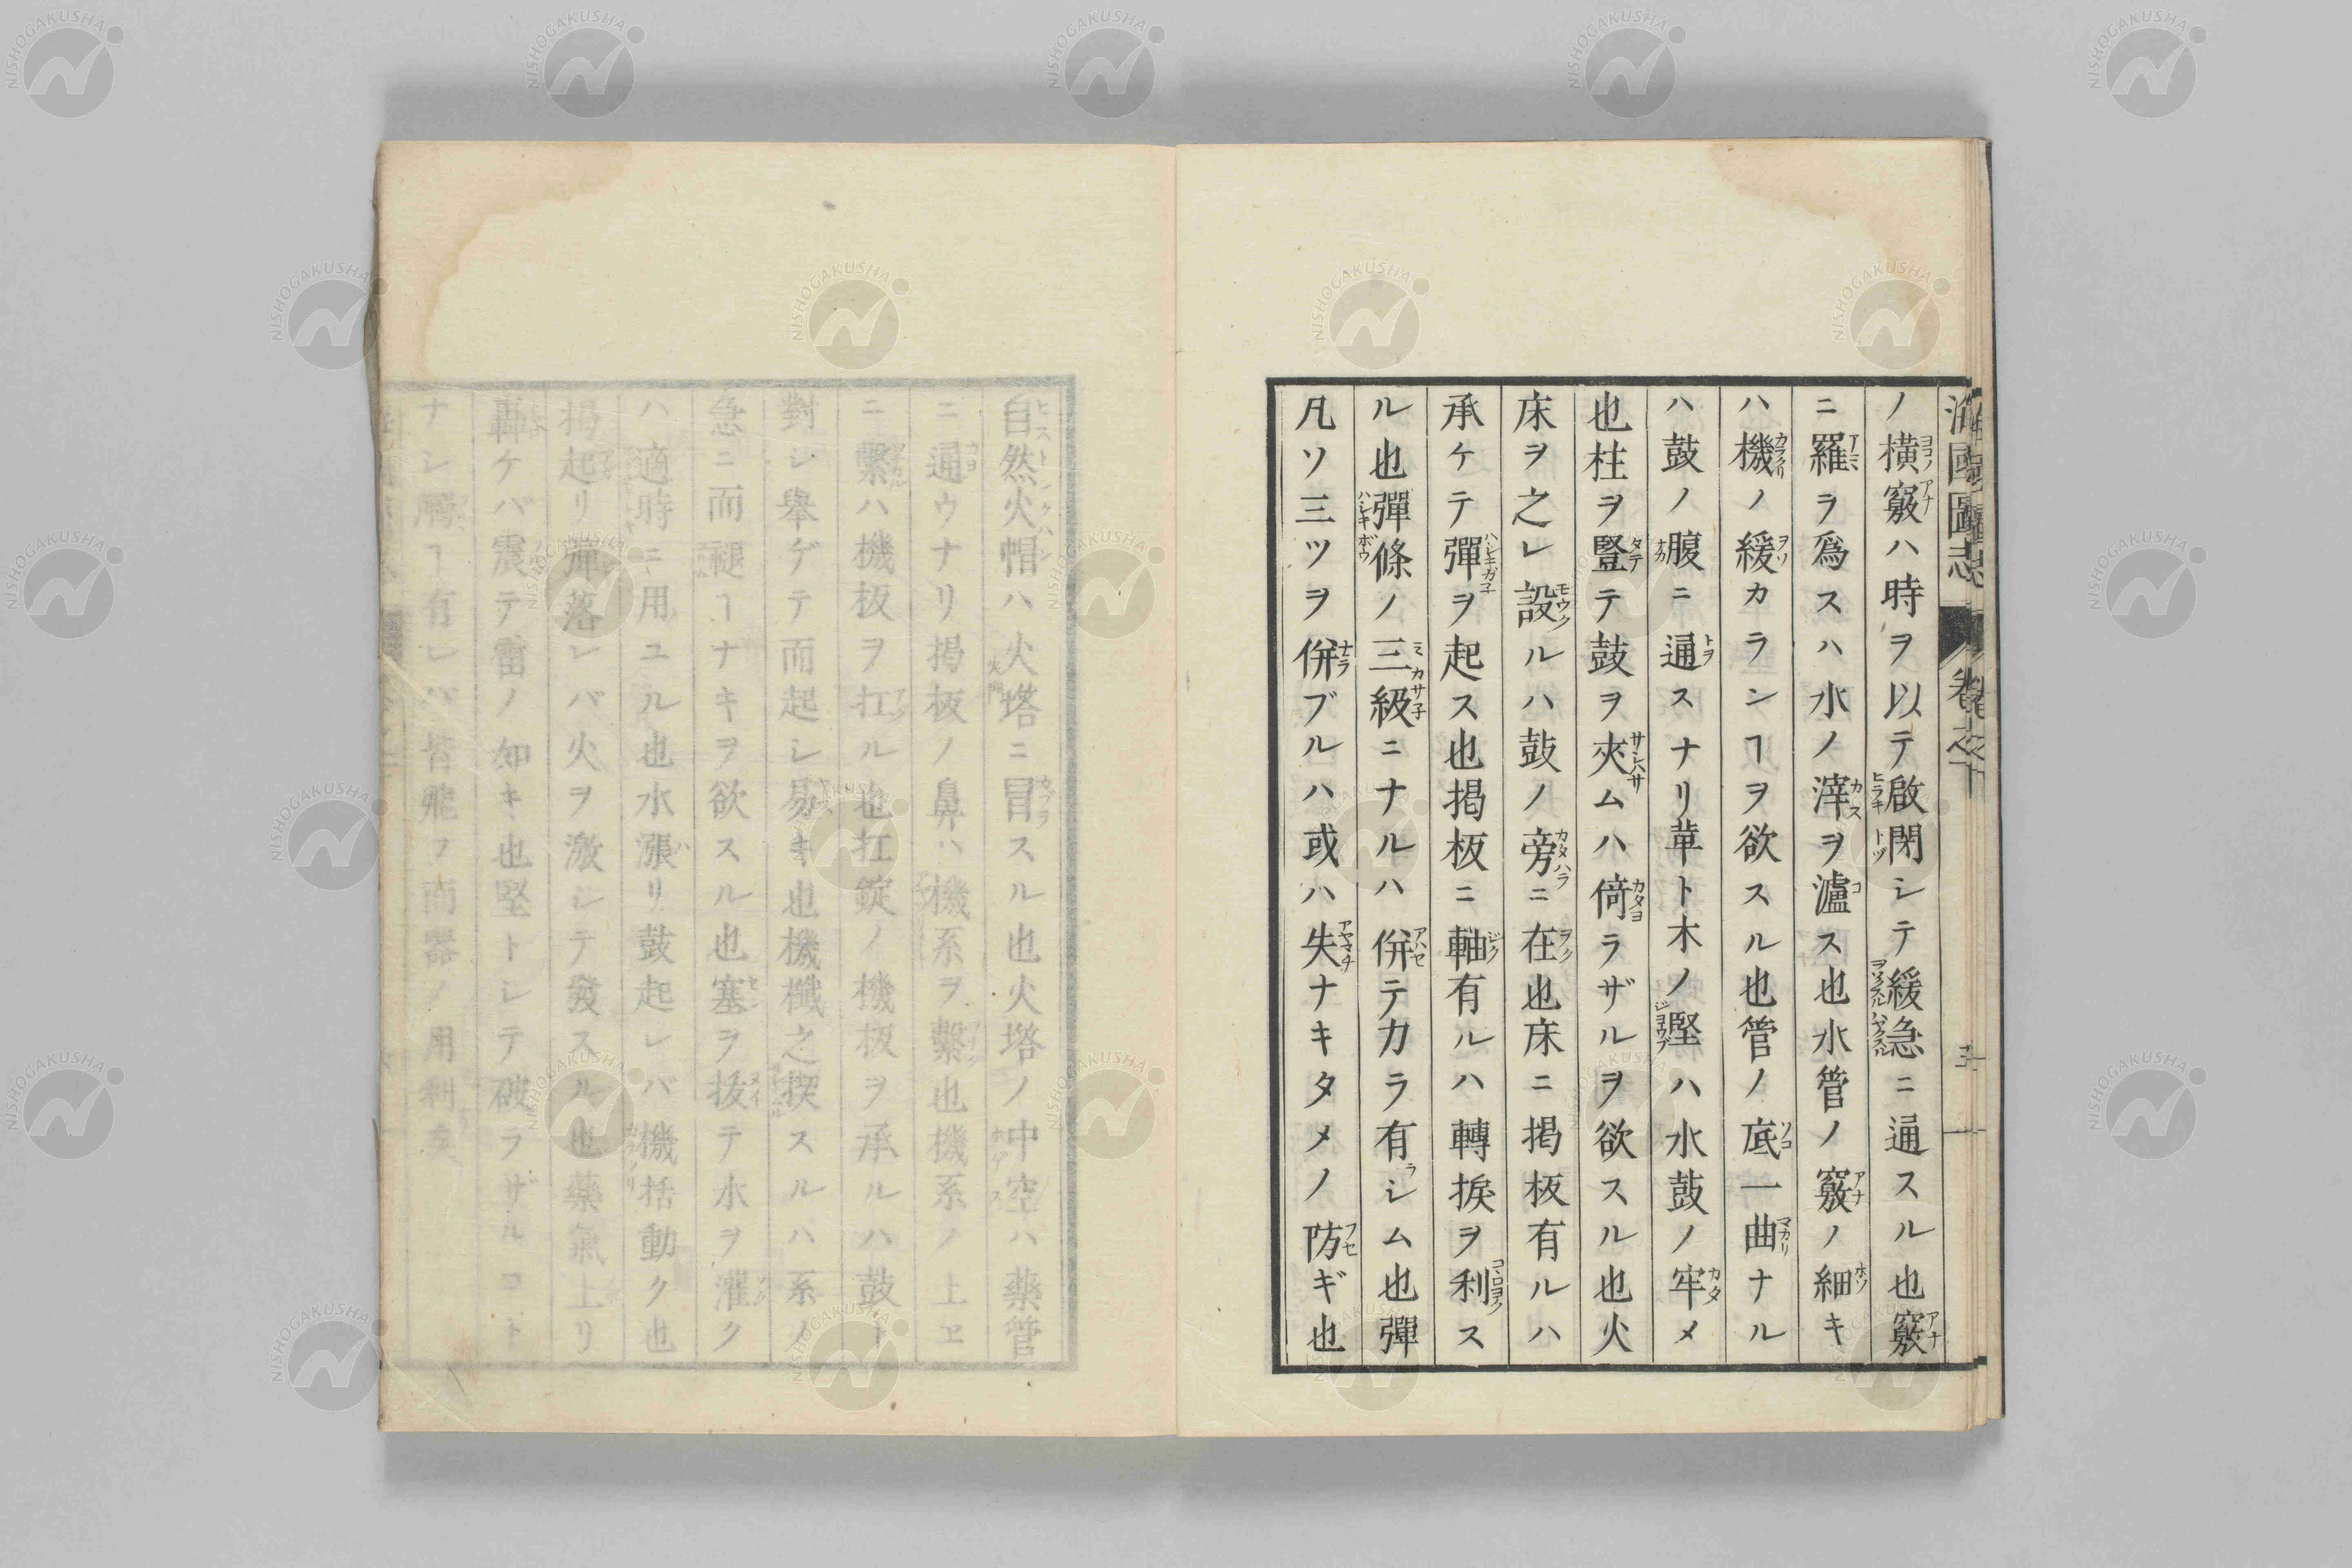 海國圖志 卷之下
ノ横竅ハ時ヲ以テ啟閉シテ緩急ニ通スル也竅
ニ羅ヲ爲スハ水ノ滓ヲ濾ス也水管ノ竅ノ細キ
ハ機ノ緩カランヿヲ欲スル也管ノ底一曲ナル
ハ鼓ノ腹ニ通スナリ革ト木ノ堅ハ水鼓ノ牢メ
也柱ヲ豎テ鼓ヲ夾ムハ倚ラザルヲ欲スル也火
床ヲ之レ設ルハ鼓ノ旁ニ在也床ニ掲板有ルハ
承ケテ彈ヲ起ス也掲板ニ軸有ルハ轉捩ヲ利ス
ル也彈條ノ三級ニナルハ併テ力ラ有シム也彈
凡ソ三ツヲ併ブルハ或ハ失ナキタメノ防ギ也
自然火帽ハ火塔ニ冒スル也火塔ノ中空ハ藥管
ニ通ウナリ掲板ノ鼻ハ機系ヲ繫也機系ノ上ヱ
ニ繫ハ機板ヲ扛ル也扛錠ノ機板ヲ承ルハ鼓ト
對レ舉ゲテ而起シ易キ也機櫼之揳スルハ系ノ
急ニ而褪ヿナキヲ欲スル也塞ヲ拔テ水ヲ灌ク
ハ適時ニ用ユル也水漲リ鼓起レバ機括動ク也
掲起リ彈落レバ火ヲ激シテ發スル也藥氣上リ
轟ケバ震テ雷ノ如キ也堅トシテ破ラザルコト
ナシ觸ヿ有レバ皆飛フ而器ノ用利矣